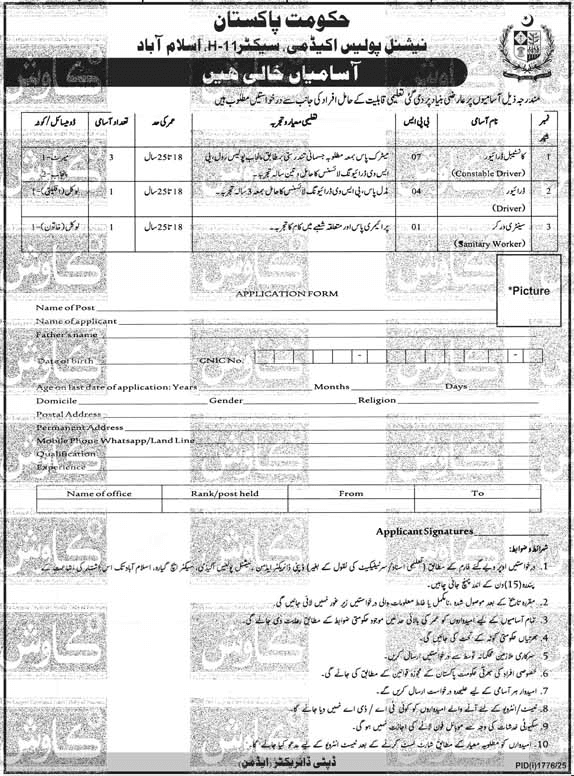 حکومت پاکستان
نیشنل پولیس اکیڈمی، سیکٹر H-11، اسلام آباد
آسامیاں خالی ہیں
مندرجہ ذیل آسامیوں پر عارضی بنیاد پر دی گئی تعلیمی قابلیت کے حامل افراد کی جانب سے درخواستیں مطلوب ہیں
نمبر شمار نام آسامی بی پی ایس تعلیمی معیار و تجربہ عمر کی حد تعداد آسامی ڈومیسائل/کوٹہ
1 کانسٹیبل ڈرائیور (Constable Driver) 07 میٹرک پاس بمعہ مطلوبہ جسمانی تندرستی بمطابق پنجاب پولیس رولز، پی ایس وی ڈرائیونگ لائسنس کا حامل و تین سالہ تجربہ۔ 18 تا 25 سال 3 میرٹ-1 پنجاب-2
2 ڈرائیور (Driver) 04 مڈل پاس، پی ایس وی ڈرائیونگ لائسنس کا حامل بمعہ 3 سالہ تجربہ۔ 18 تا 25 سال 1 لوکل (اقلیتی)-1
3 سینٹری ورکر (Sanitary Worker) 01 پرائمری پاس اور متعلقہ شعبے میں کام کا تجربہ۔ 18 تا 25 سال 1 لوکل (خاتون)-1
*Picture
APPLICATION FORM
Name of Post
Name of applicant
Father's name
Date of birth CNIC No.
Age on last date of application: Years Months Days
Domicile Gender Religion
Postal Address
Permanent Address
Mobile Phone Whatsapp/Land Line
Qualification
Experience
Name of office Rank/post held From To
Applicant Signatures
شرائط و ضوابط:
1. درخواستیں اوپر دیے گئے فارم کے مطابق (تعلیمی اسناد/سرٹیفکیٹ کی نقول کے بغیر) ڈپٹی ڈائریکٹر ایڈمن، نیشنل پولیس اکیڈمی، سیکٹر ایچ گیارہ، اسلام آباد تک اس اشتہار کی اشاعت کے
پندرہ (15) دن کے اندر پہنچ جانی چاہیں۔
2. مقررہ تاریخ کے بعد موصول شدہ، نامکمل یا غلط معلومات والی درخواستیں زیر غور نہیں لائی جائیں گی۔
3. تمام آسامیوں کے لیے امیدواروں کو عمر کی بالائی حد میں موجود حکومتی ضوابط کے مطابق رعایت دی جائے گی۔
4. بھرتیاں حکومتی کوٹہ کے تحت کی جائیں گی۔
5. سرکاری ملازمین محکمانہ توسط سے درخواستیں ارسال کریں۔
6. خصوصی افراد کی بھرتی حکومت پاکستان کے مجوزہ قوانین کے مطابق کی جائے گی۔
7. امیدوار ہر آسامی کے لیے علیحدہ درخواست ارسال کریں گے۔
8. ٹیسٹ/انٹرویو کے لئے آنے والے امیدواروں کو کوئی ٹی اے/ڈی اے نہیں دیا جائے گا۔
9. سکیورٹی خدشات کی وجہ سے موبائل فون لانے کی اجازت نہیں ہو گی۔
10. امیدواروں کو مطلوبہ معیار کے مطابق شارٹ لسٹ کرنے کے بعد ٹیسٹ انٹرویو کے لیے مدعو کیا جائے گا۔
ڈپٹی ڈائریکٹر (ایڈمن)
PID(i)1776/25
کاوش